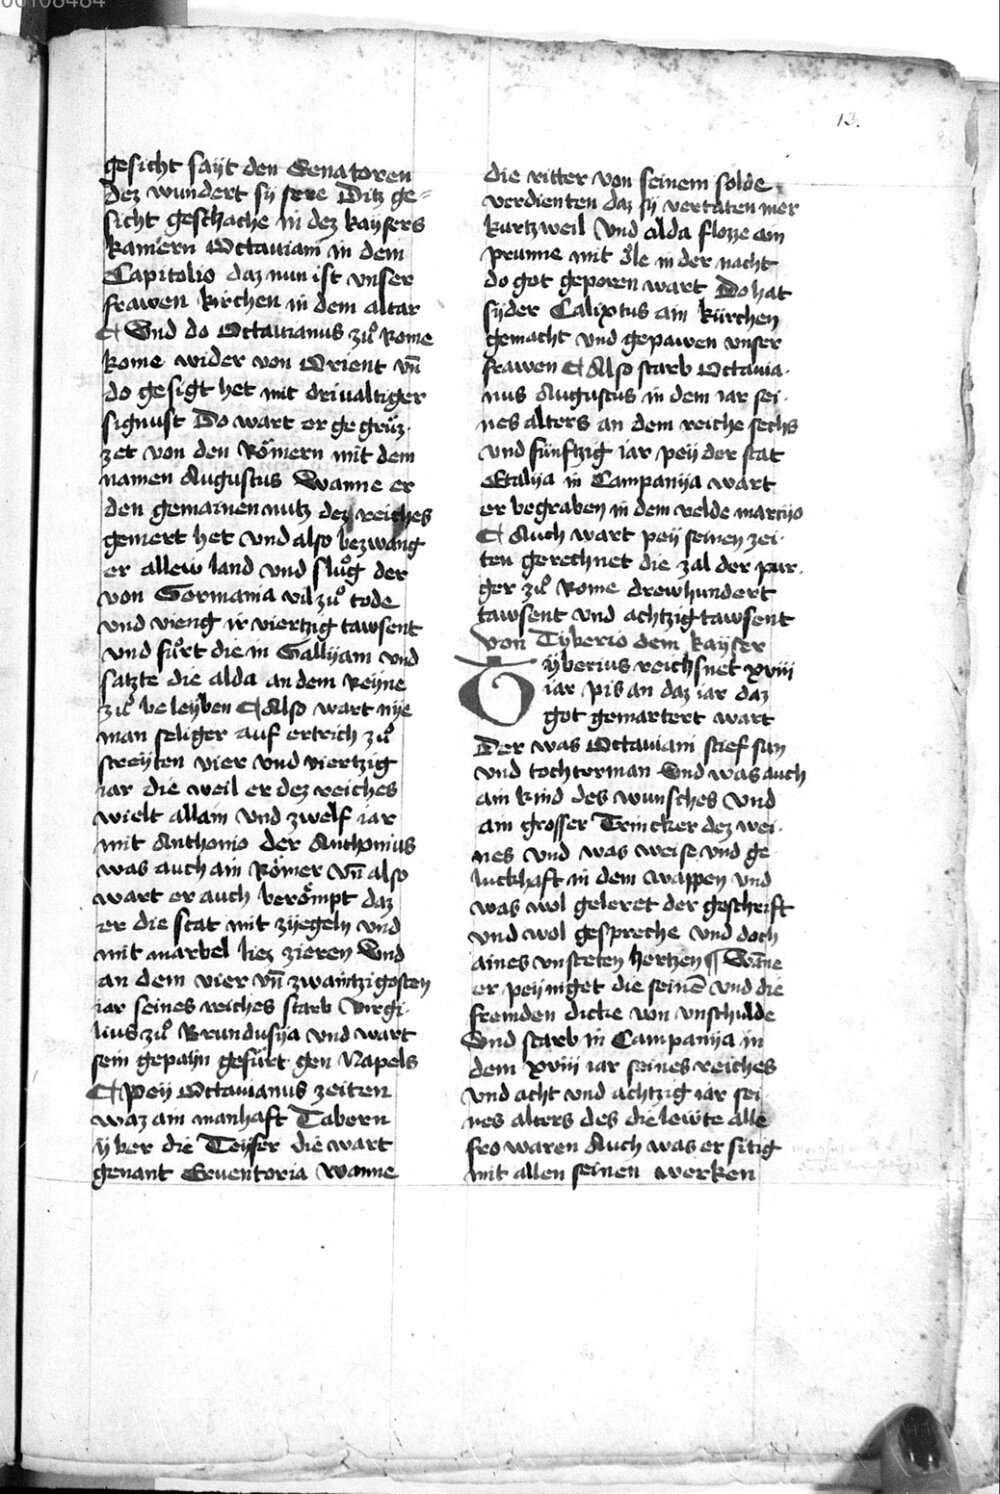 00108484
13.
gesicht saÿt den Senatoren
Dez wundert sÿ sere Ditz ge=
sicht geschache in dez kaysers
kamern Octauiani in dem
Capitolio daz nun ist vnser
frawen kirchen in dem altar
¶ Vnd do Octauianus zuͦ Rome
kome wider von Orient vn̄
do gesigt het mit driualtiger
signust Do wart er gegrüz-
zet von den Römern mit dem
namen Augustus Wanne er
den gemainen nutz dez reiches
gemert het vnd also bezwang
er allew land vnd sluͦg der
von Germania vil zuͦ tode
vnd vieng ir viertzig tawsent
vnd fuͦrt die in Gallÿam vnd
satzte die alda an dem Reÿne
zuͦ beleÿben ¶ Also wart nÿe
man seliger auf ertrich zuͦ
streÿten vier vnd viertzig
iar die weil er dez reiches
wielt allain vnd zwelf iar
mit Anthonio der Anthonius
was auch ain Römer vn̄ also
wart er auch berömpt daz
er die stat mit zÿegeln vnd
mit marbel liez zieren Vnd
an dem vier vn̄ zwaintzigosten
iar seines reiches starb Virgi-
lius zuͦ Brundusÿa vnd wart
sein gepain gefürt gen Napels
¶ Peÿ Octauianus zeiten
waz ain manhaft Tabern
ÿber die Teÿfer die wart
genant Eeuentoria wanne
die ritter von seinem solde
verdienten daz sÿ vertaten mer
kurtzweil Vnd alda flozze ain
prunne mit öle in der nacht
do got geporen wart Do hat
sÿder Calixtus ain kürchen
gemacht vnd gepawen vnser
frawen ¶ Also starb Octauia-
nus Augustus in dem iar sei-
nes alters an dem reiche sechs
vnd fünftzig iar peÿ der stat
Etalÿa in Campanÿa wart
er begraben in dem velde marcÿo
¶ Auch wart peÿ seinen zei-
ten gerechnet die zal der pur-
ger zuͦ Rome drewhundert
tawsent vnd achtzig tawsent
von Tÿberio dem kayser
Tÿberius reichsnet xviii
iar pis an daz iar daz
got gemartert wart
Der was Octauiani stief sun
vnd tochterman Vnd was auch
ain kind des wunsches Vnd
ain grosser Trincker dez wei-
nes Vnd was weise vnd ge
luckhaft in dem wappen vnd
was wol geleret der geschrift
vnd wol gespreche vnd doch
aines vnsteten hertzen ¶ Wāne
er peÿniget die seinē vnd die
fremden dicke von vnschulde
Vnd starb in Campanÿa in
dem xviii iar seines reiches
vnd acht vnd achtzig iar sei-
nes alters des die lewte alle
fro waren Auch was er sitig
mit allen seinen werken